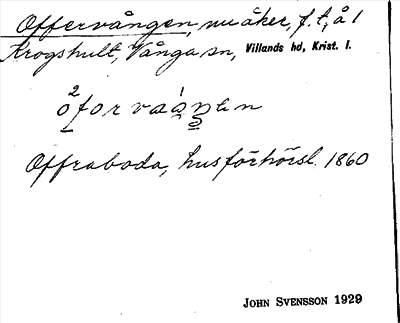 Offervången, nu åker, f.t., å 1
Krogshult, Vånga sn, Villands hd, Krist. l.
Offraboda, husförhörsl. 1860
JOHN SVENSSON 1929